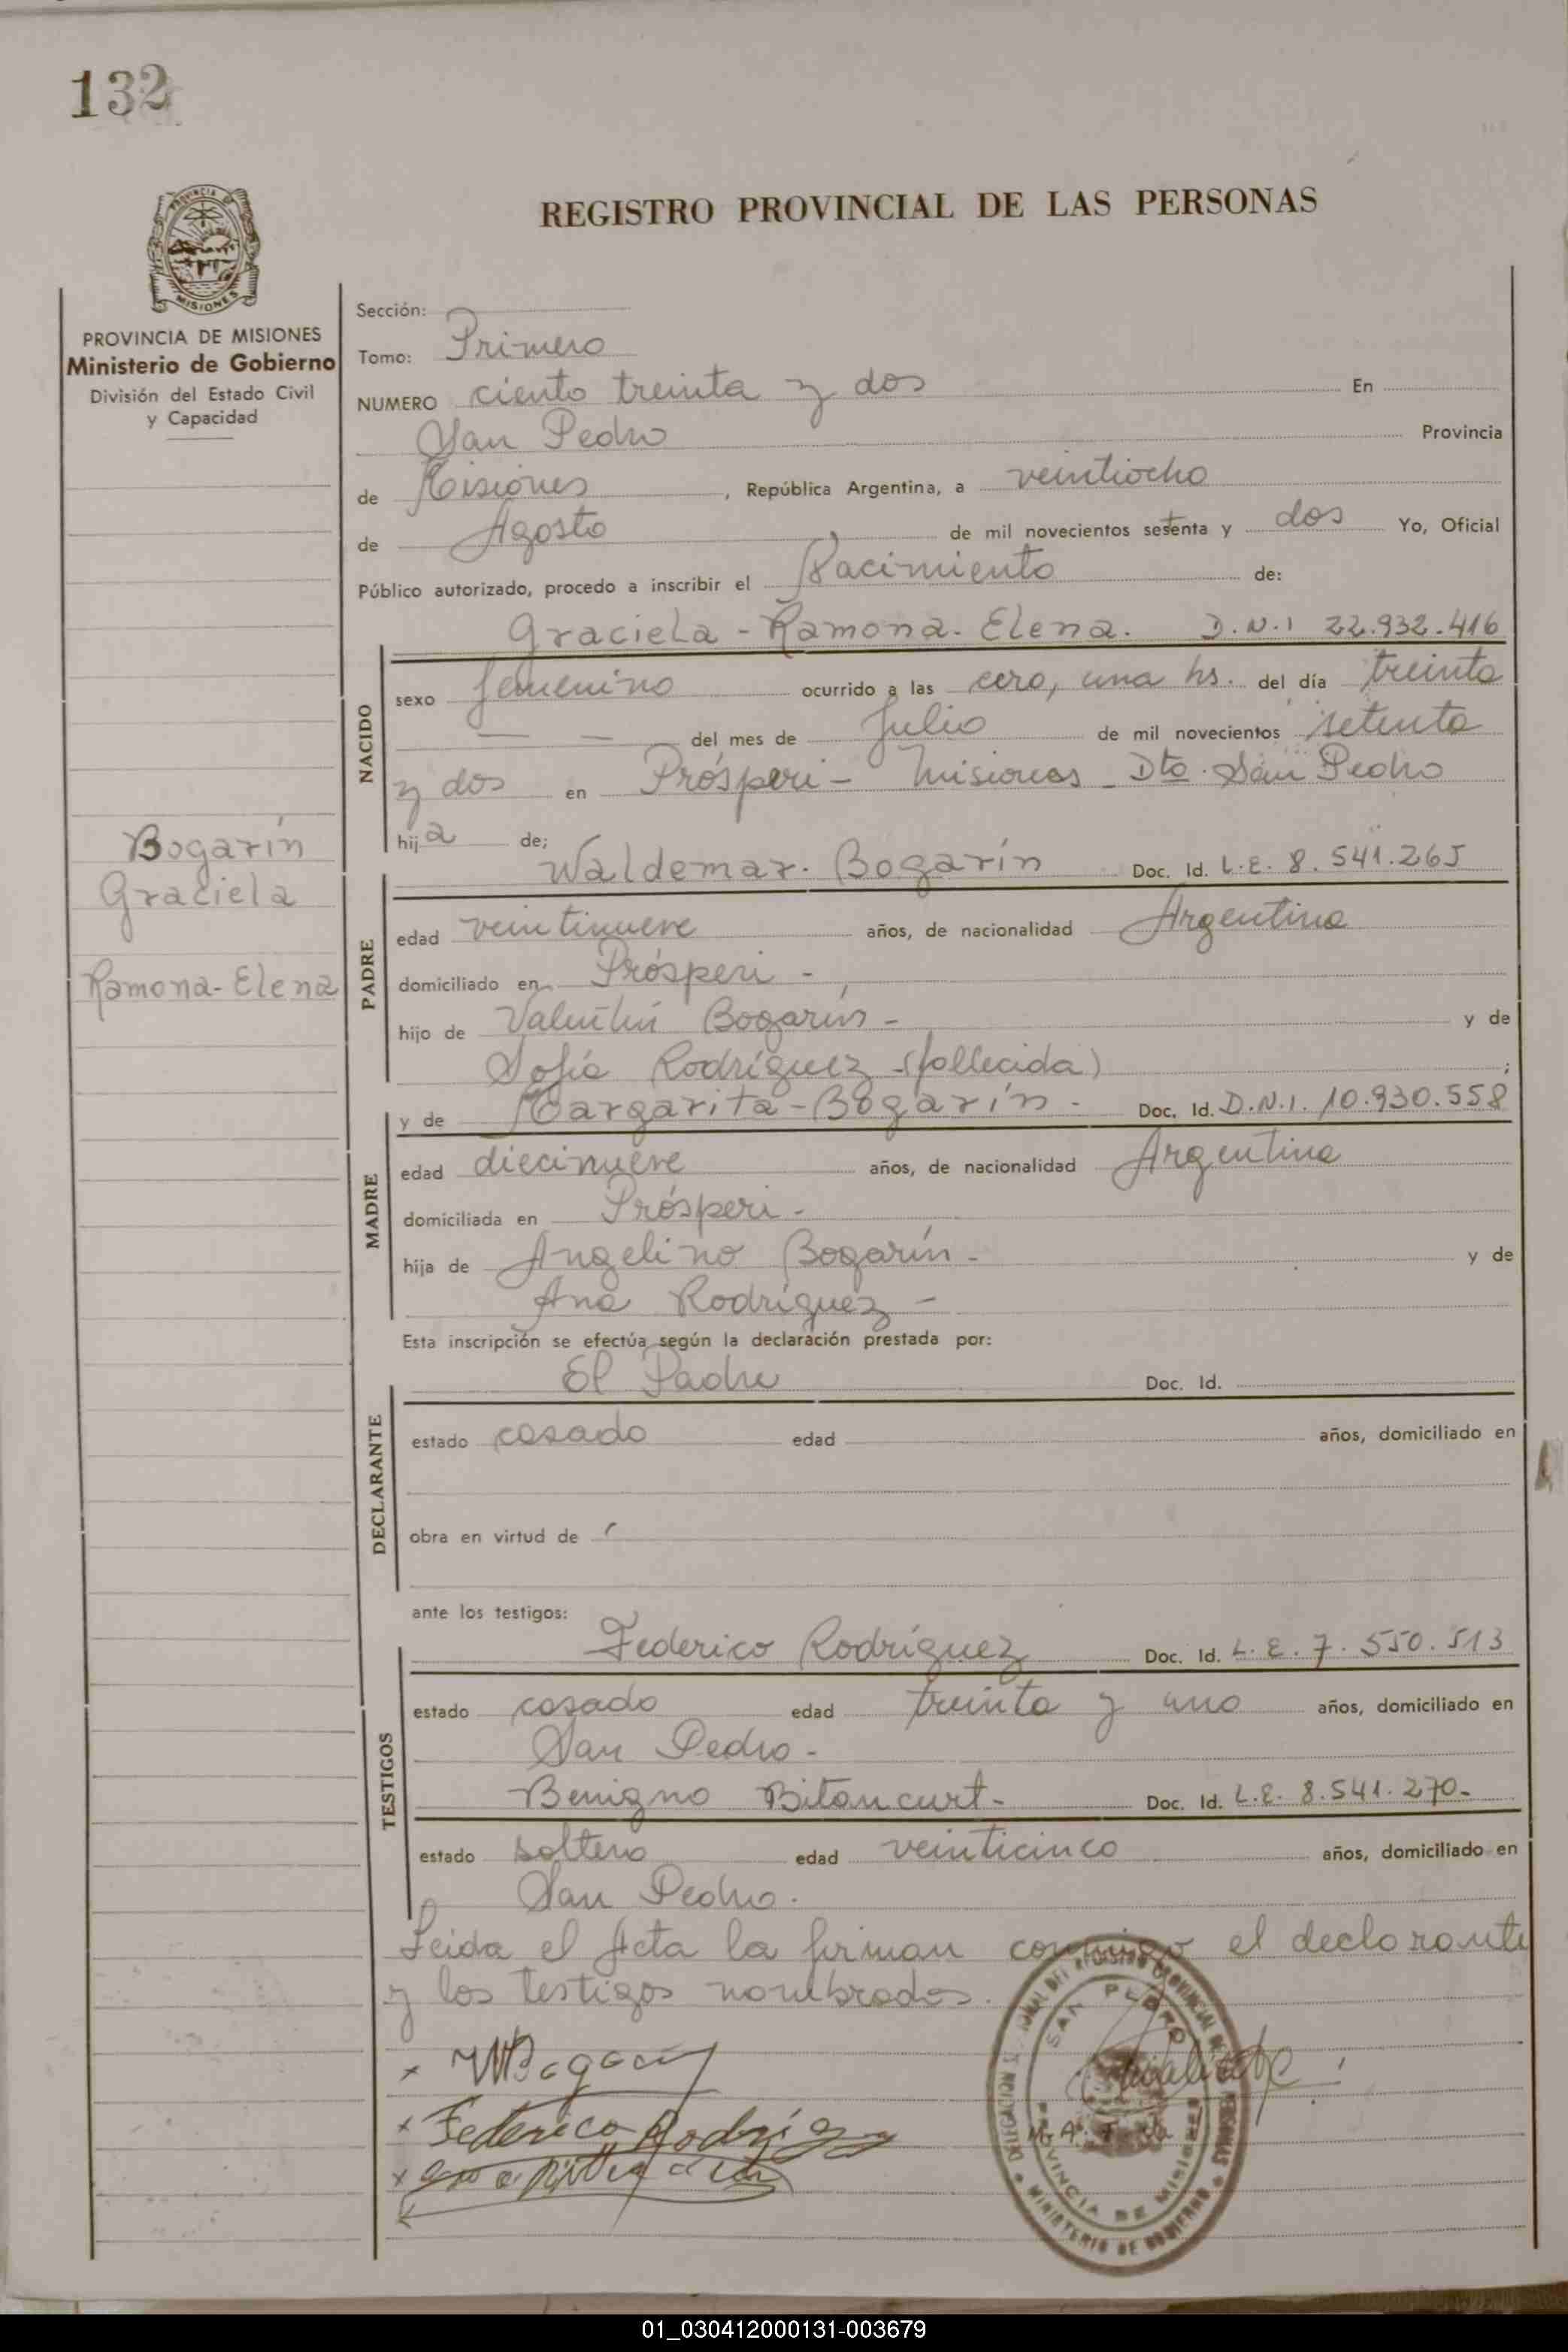 132
PROVINCIA
MISIONES
REGISTRO PROVINCIAL DE LAS PERSONAS
PROVINCIA DE MISIONES
Ministerio de Gobierno
División del Estado Civil
y Capacidad
Bogarín
Graciela
Ramona-Elena
Sección:
Tomo: Primero
NUMERO ciento treinta y dos En
San Pedro Provincia
de Misiones, República Argentina, a veintiocho
de Agosto de mil novecientos setenta y dos Yo, Oficial
Público autorizado, procedo a inscribir el Nacimiento de:
Graciela - Ramona - Elena. D.N.I 22.932.416
NACIDO
sexo femenino ocurrido a las cero, una hs. del día treinta
— — del mes de Julio de mil novecientos setenta
y dos en Prósperi - Misiones - Dto. San Pedro
hija de;
Waldemar. Bogarín Doc. Id. L.E. 8.541.265
PADRE
edad veintinueve años, de nacionalidad Argentina
domiciliado en Prósperi -
hijo de Valentín Bogarín - y de
Sofía Rodríguez - (fallecida) ;
y de Margarita - Bogarín - Doc. Id. D.N.I. 10.930.558
MADRE
edad diecinueve años, de nacionalidad Argentina
domiciliada en Prósperi -
hija de Angelino Bogarín - y de
Ana Rodríguez -
Esta inscripción se efectúa según la declaración prestada por:
El Padre Doc. Id.
DECLARANTE
estado casado edad años, domiciliado en
obra en virtud de
ante los testigos:
Federico Rodríguez Doc. Id. L.E. 7.550.513
TESTIGOS
estado casado edad treinta y uno años, domiciliado en
San Pedro -
Benigno Bitancurt - Doc. Id. L.E. 8.541.270-
estado soltero edad veinticinco años, domiciliado en
San Pedro.
Leida el Acta la firman conmigo el declarante
y los testigos nombrados.
x WBogarin
x Federico Rodríguez
x
DELEGACION DEL REGISTRO PROVINCIAL DE LAS PERSONAS
SAN PEDRO
PROVINCIA DE MISIONES
MINISTERIO DE GOBIERNO
01_030412000131-003679